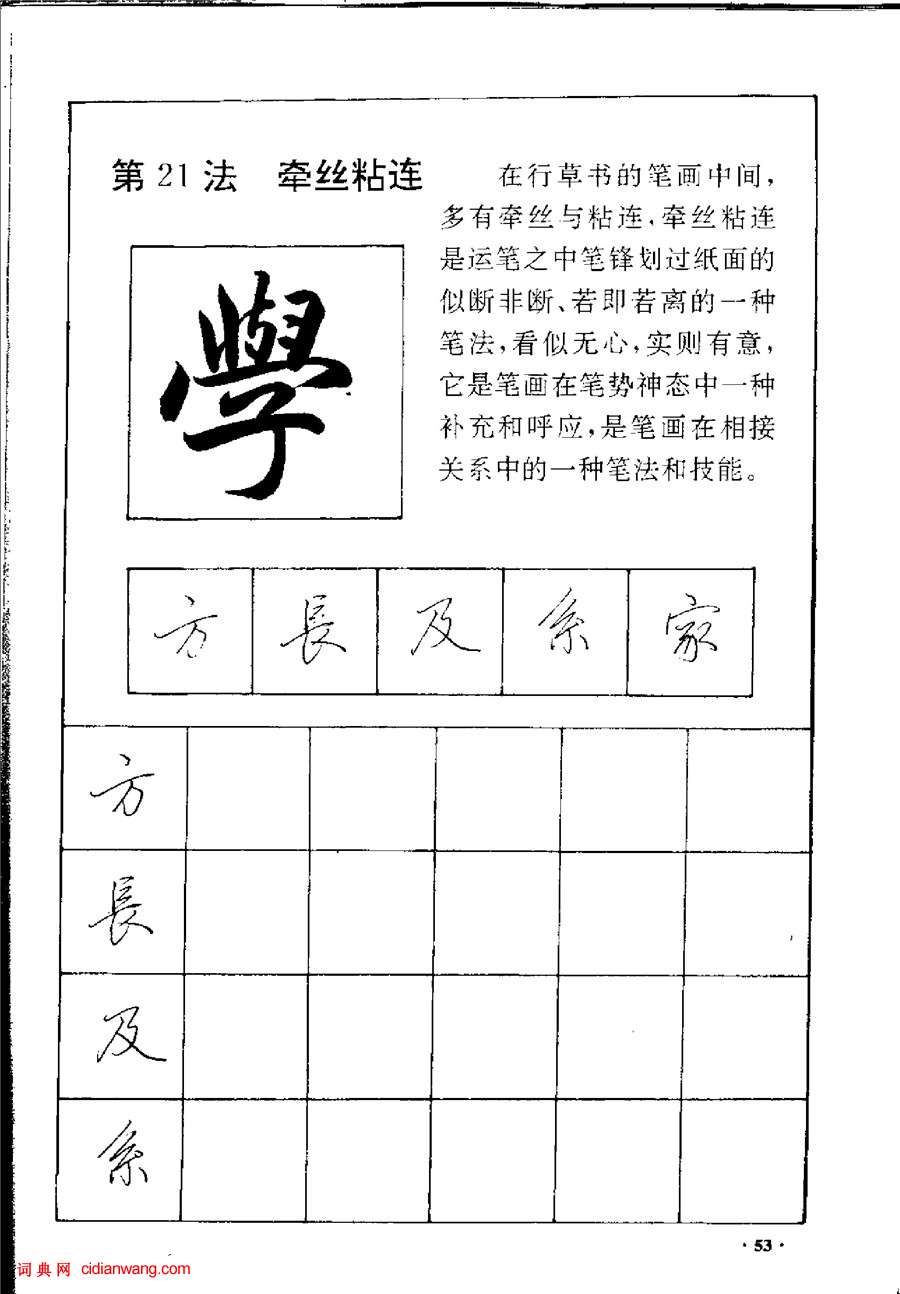 第21法 牵丝粘连
學
在行草书的笔画中间，
多有牵丝与粘连，牵丝粘连
是运笔之中笔锋划过纸面的
似断非断、若即若离的一种
笔法，看似无心，实则有意，
它是笔画在笔势神态中一种
补充和呼应，是笔画在相接
关系中的一种笔法和技能。
方 長 及 系 家
方
長
及
系
·53·
词典网 cidianwang.com